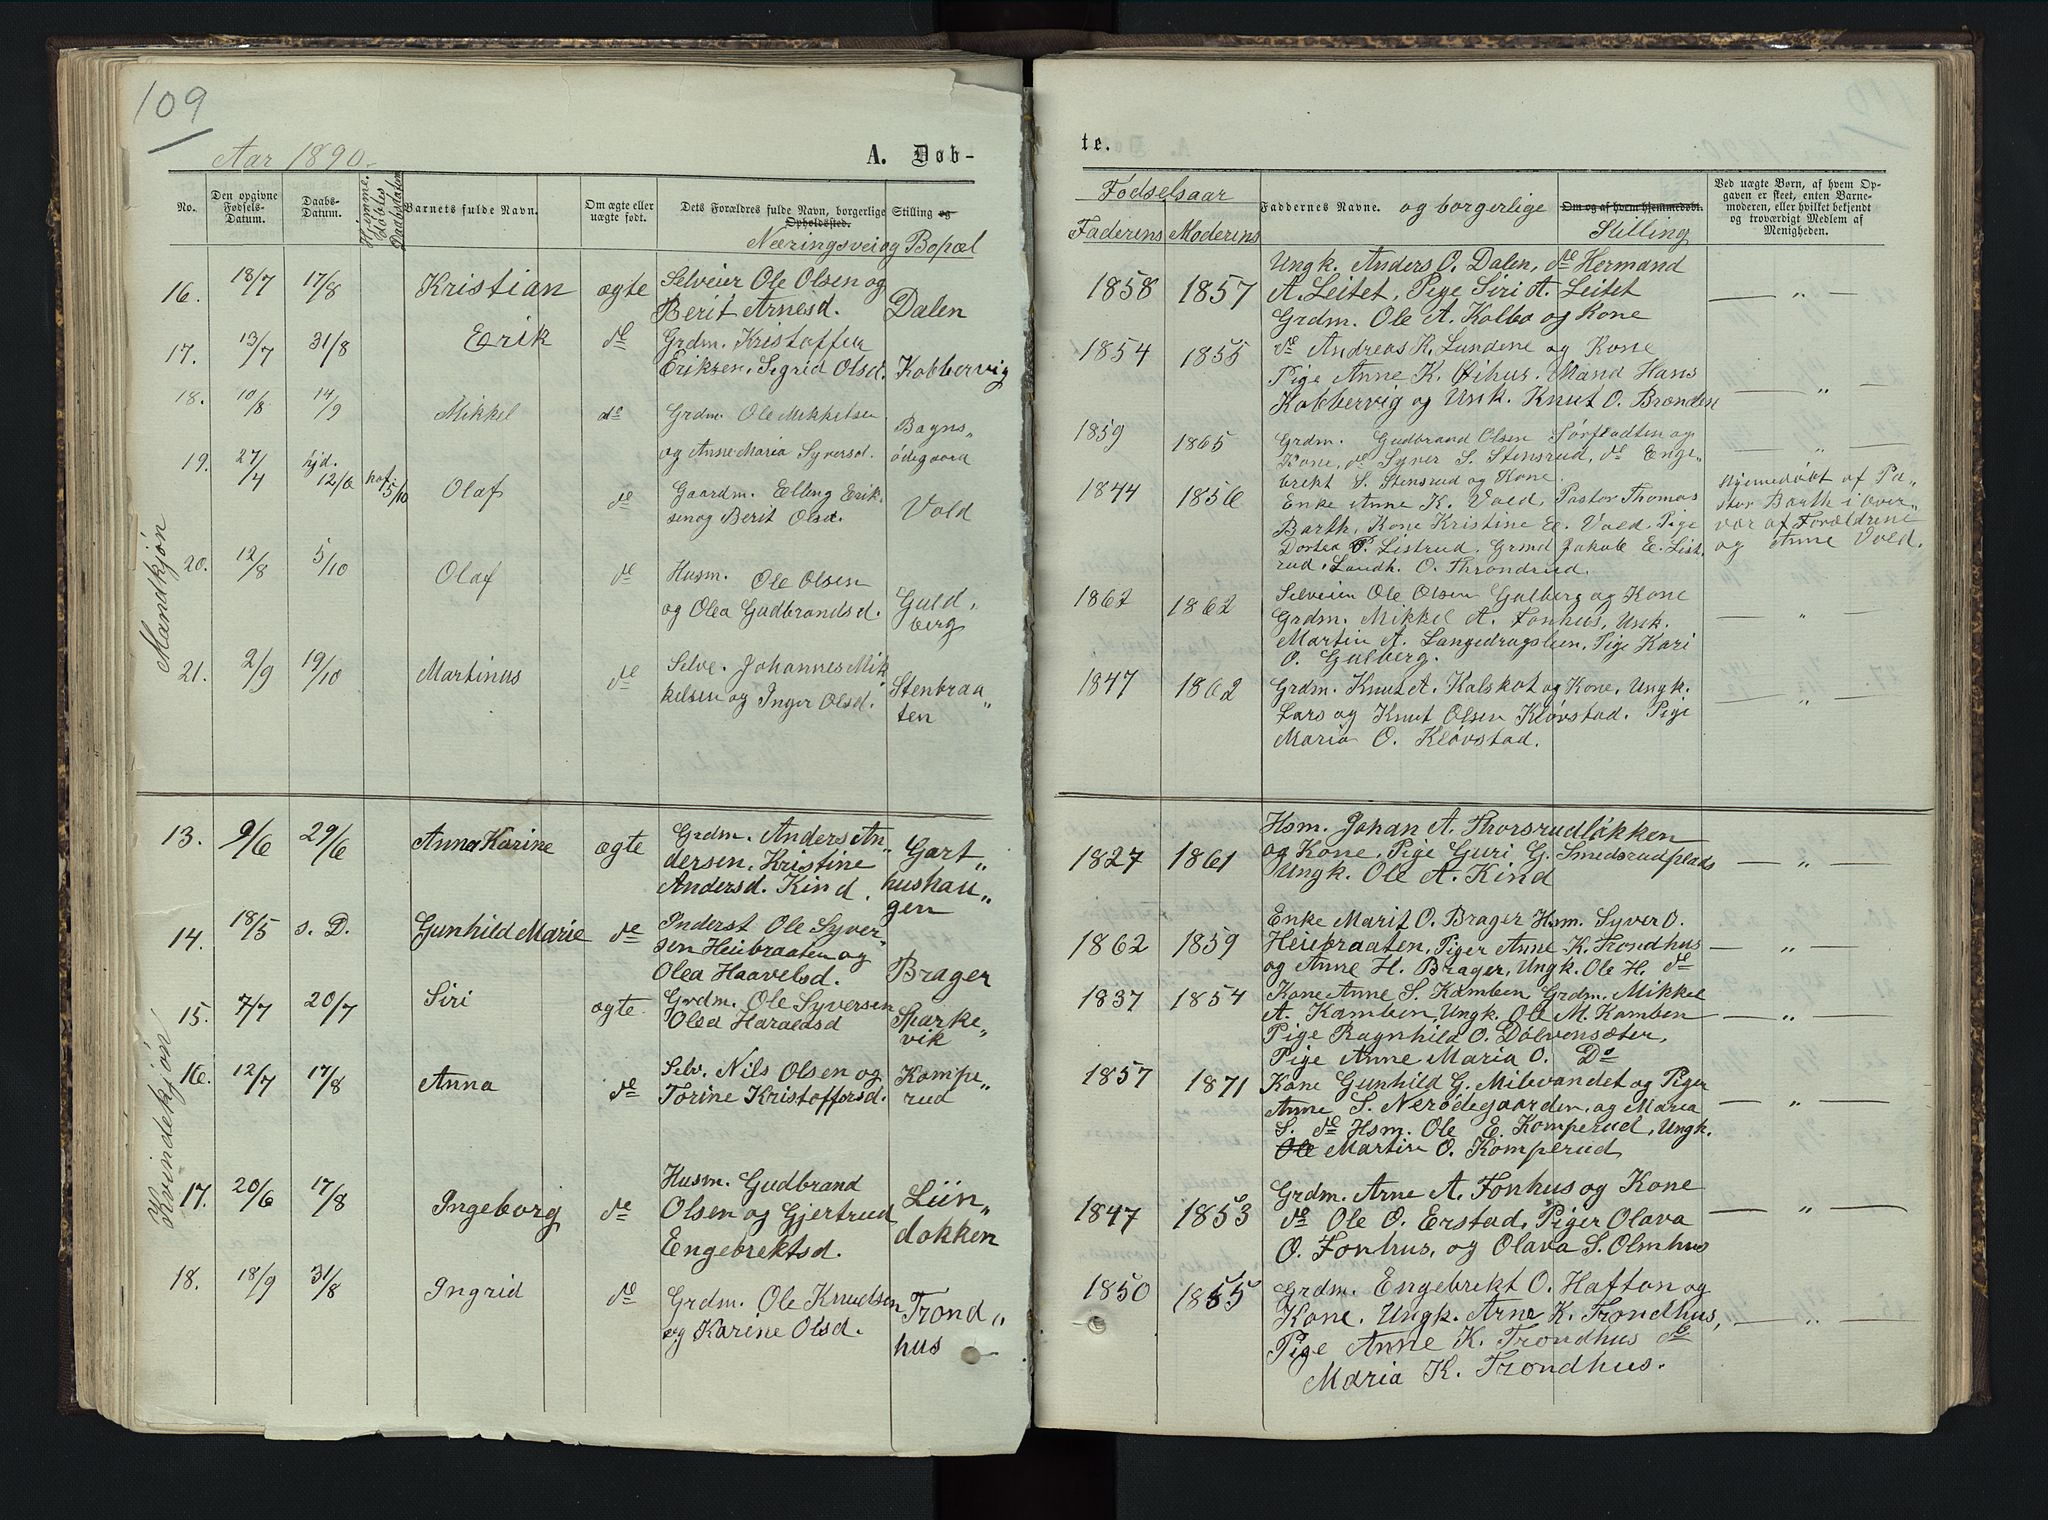 109
Aar 1890.
A. Døb-
te.
No.
Den opgivne Fødsels-Datum.
Daabs-Datum.
Hjemme-døbtes Daabsdatum
Barnets fulde Navn.
Om ægte eller uægte født.
Dets Forældres fulde Navn, borgerlige Stilling og Opholdssted.
Næringsvei og Bopæl
Fødselsaar
Faderens Moderens
Faddernes Navne. og borgerlige Stilling
Om og af hvem hjemmedøbt.
Ved uægte Børn, af hvem Op-
gaven er skeet, enten Barne-
moderen, eller hvilket bekjendt
og troværdigt Medlem af
Menigheden.
Mandkjøn
16. 18/7 17/8 Kristian ægte Selveier Ole Olsen og
Berit Arnesd. Dalen
1858 1857 Ungk. Anders O. Dalen, do Hermand
A. Leitet, Pige Siri A. Leitet
Grdm. Ole A. Kolbo og Kone
17. 13/7 31/8 Erik do Grdm. Kristoffer
Eriksen, Sigrid Olsd. Kobbervig
1854 1855 do Andreas K. Lundene og Kone
Pige Anne K. Øihus. Mand Hans
Kobbervig og Unk. Knut O. Brenden
18. 10/8 14/9 Mikkel do Grdm. Ole Mikkelsen
og Anne Maria Syversd. Bagns-
ødegaard
1859 1865 Grdm. Gudbrand Olsen Sørfladten og
Kone, do Syver S. Stensrud, do Enge-
brekt S. Stensrud og Kone.
19. 27/4 hjd. 12/6 5/10 Olaf do Gaardm. Elling Erik-
sen og Berit Olsd. Vold
1844 1856 Enke Anne K. Vold, Pastor Thomas
Barth, Kone Kristine E. Vold, Pige
Dortea P. Listrud, Grmd Jakob E. List-
rud, Landh. O. Throndrud.
Hjemedøbt af Pa-
stor Barth i over-
vær af Forældrene
og Anne Vold.
20. 12/8 5/10 Olaf do Husm. Ole Olsen
og Olea Gudbrandsd. Guld-
berg
1862 1862 Selveier Ole Olsen Gulberg og Kone
Grdm. Mikkel A. Fonhus, Unk.
Martin A. Langedragsleen, Pige Kari
O. Gulberg.
21. 2/9 19/10 Martinus do Selve. Johannes Mik-
kelsen og Inger Olsd. Stenbraa-
ten
1847 1862 Grdm. Knut A. Kalskot og Kone, Ungk.
Lars og Knut Olsen Kløvstad. Pige
Maria O. Kløvstad.
Kvindekjøn
13. 9/6 29/6 Anna Karine ægte Grdm. Anders An-
dersen, Kristine
Andersd. Kind. Gart-
hushau-
gen
1827 1861 Hsm. Johan A. Thorsrudløkken
og Kone, Pige Guri G. Smedsrudplads
Ungk. Ole A. Kind
14. 18/5 s. D. Gunhild Marie do Inderst Ole Syver-
sen Heiebraaten og
Olea Haavelsd. Brager
1862 1859 Enke Marit O. Brager Hsm. Syver O.
Heiebraaten, Piger Anne K. Trondhus
og Anne H. Brager, Ungk. Ole H. do
15. 7/7 20/7 Siri ægte. Grdm. Ole Syversen
Olea Haraldsd Sparke-
vik
1837 1854 Kone Anne S. Kamben Grdm. Mikkel
A. Kamben, Ungk. Ole M. Kamben
Pige Ragnhild O. Dølvensæter,
Pige Anne Maria O. Do
16. 12/7 17/8 Anna do Selv. Nils Olsen og
Torine Kristoffersd. Kompe-
rud
1857 1871 Kone Gunhild G. Milevandet og Piger
Anne S. Nerødegaarden, og Maria
S. do Hsm. Ole E. Komperud, Ungk.
Ole Martin O. Komperud
17. 20/6 17/8 Ingeborg do Husm. Gudbrand
Olsen og Gjertrud
Engebrektsd. Liin-
dokken
1847 1853 Grdm. Arne A. Fonhus og Kone
do Ole O. Erstad, Piger Olava
O. Fonhus, og Olava S. Olmhus
18. 18/9 31/8 Ingrid do Grdm. Ole Knudsen
og Karine Olsd. Trond-
hus
1850 1855 Grdm. Engebrekt O. Hafton og
Kone, Ungk. Arne K. Trondhus,
Pige Anne K. Trondhus do
Maria K. Trondhus.